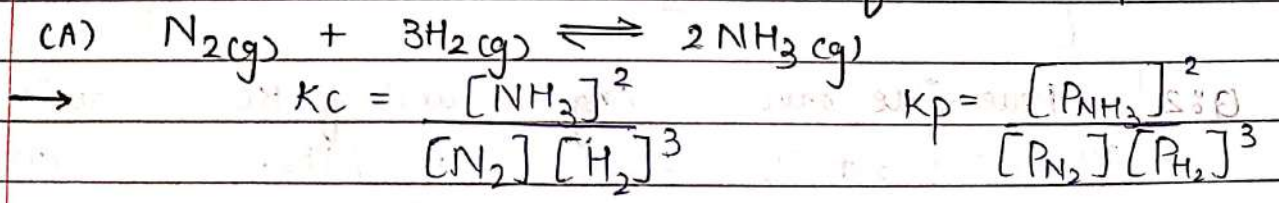 (A) N₂(g) + 3H₂(g) ⇌ 2NH₃(g)
→ Kc = [NH₃]² / [N₂] [H₂]³ Kp = [P_NH₃]² / [P_N₂] [P_H₂]³